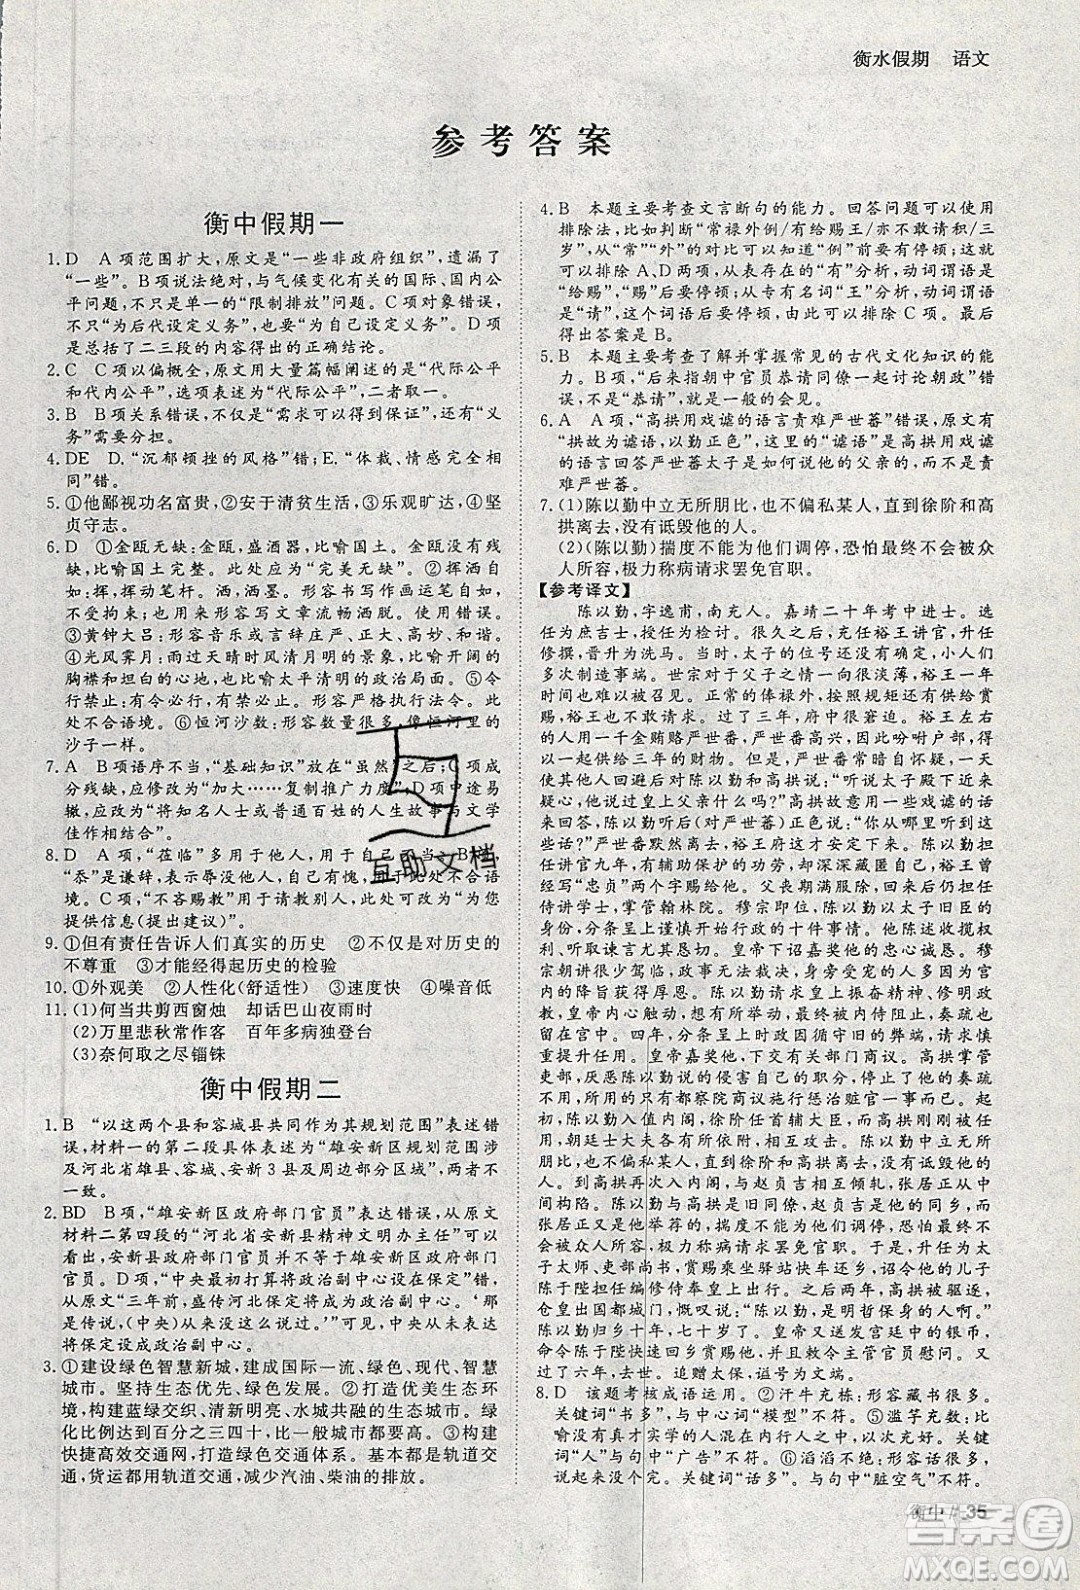 衡水假期　语文
参考答案
衡中假期一
1. D　A 项范围扩大，原文是“一些非政府组织”，遗漏了
“一些”。B 项说法绝对，与气候变化有关的国际、国内公
平问题，其中之一的“限制排放”问题。C 项对象错误，
不只“为后代设定义务”，也要“为当代设定义务”。D 项
是综合了二三段的内容得出的正确结论。
2. C　C 项以偏概全，原文用大量篇幅阐述的是“代际公平
和代内公平”，选项表述为“代际公平”，二者取一。
3. B　B 项关系错误，不仅是“需求可以得到保证”，还有“义
务”需要分担。
4. DE　D.“沉郁顿挫的风格”错；E.“体裁、情感完全相
同”错。
5. ①他鄙视功名富贵，②安于清贫生活，③乐观旷达，④坚
贞守志。
6. D　①金瓯无缺：金瓯，盛酒器，比喻国土。金瓯没有残
缺，比喻国土完整。此处应为“完美无缺”。②挥洒自
如：挥，挥动笔杆。洒，洒墨。形容书写或作画运笔能
不拘束，后也用来形容写文章流畅洒脱。使用错误。
③黄钟大吕：形容音乐或言辞庄严、正大、高妙、和谐。
④光风霁月：雨过天晴时风清月明的景象，比喻开阔的
胸襟和坦白的心地，也比喻太平清明的政治局面。⑤令
行禁止：有令必行，有禁必止。形容严格执行法令。此
处不合语境。⑥恒河沙数：形容数量很多，像恒河里的
沙子一样。
7. A　B 项语序不当，“基础知识”放在“虽然”之后；C 项成
分残缺，应修改为“加大……复制推广力度”；D 项中途易
辙，应改为“将知名人士或普通百姓的人生故事与文学
佳作相结合”。
8. D　A 项，“莅临”多用于他人，用于自己不当。B 项，
“忝”是谦辞，表示辱没他人，自己有愧，用于此处不合语
境。C 项，“不吝赐教”是对对方的敬辞，可改成“为您
提供信息（提出建议）”。
9. ①但有责任告诉人们真实的历史　②不仅是对历史
的不尊重　③才能经得起历史的检验
10. ①外观美　②人性化(舒适性)　③速度快　④噪音低
11. (1)何当共剪西窗烛　却话巴山夜雨时
(2)万里悲秋常作客　百年多病独登台
(3)奈何取之尽锱铢
衡中假期二
1. B　“以这两个县和容城县共同作为其规划范围”表述错
误，材料一的第二段具体表述为“雄安新区规划范围涉
及河北省雄县、容城、安新 3 县及周边部分区域”，两者不
一致。
2. BD　B 项，“雄安新区政府部门官员”表述错误，从原文
材料二第四段的“河北省安新县精神文明办主任”可以
看出，安新县政府部门官员并不等于雄安新区政府部门
官员。D 项，“中央最初打算将政治副中心在保定”错，
从原文“三年前，盛传河北保定将成为政治副中心。‘那
是纯粹的流言，(中央)从来没这么说过’”，中央从未表示
将保定设成政治副中心。
3. ①建设绿色智慧新城，建成国际一流、绿色、现代、智慧
城市。坚持生态优先、绿色发展。②打造优美生态环
境，构建蓝绿交织、清新明亮、水城共融的生态城市。绿
化比例达到百分之三四十，水的比例也会很高。③构建
快捷高效交通网，打造绿色交通体系。基本都是轨道交
通，货运都用轨道交通，减少汽油、柴油的排放。
4. B　本题主要考查文言断句的能力。回答问题可以使用
排除法，比如判断“常禄外例/有给赐王/亦不敢请积/三
岁”，从“常”“外”的对比可以知道“例”前要有停顿；就可
以排除 A、D 两项，从表存在的“有”分析，动词谓语是
“给赐”，“有”前要停顿；从专有名词“王”分析，动词谓语
是“请”，这个词语后要停顿，可以排除 C 项。最后
得出答案是 B。
5. B　本题主要考查了解并掌握常见的古代文化知识的能
力。B 项，“后来指朝中官员恭请同僚一起讨论政务”错
误，不是“恭请”，就是一般的会见。
6. A　A 项，“高拱用戏谑的语言责难严世蕃”错误，原文有
“拱故为谑语，以勤正色”，这里的“谑语”是高拱用戏谑
的语言回答严世蕃太子是如何说他的父亲的，而不是责
难严世蕃。
7. (1)陈以勤中立无所朋比，也不偏私某人，直到徐阶和高
拱离开，没有诋毁他的人。
(2)(陈以勤)揣度不能为他们调停，恐怕最终不会被众
人所容忍，极力称病请求罢免官职。
【参考译文】
陈以勤，字逸甫，南充人。嘉靖二十年考中进士。选
任为庶吉士，授任为检讨。很久之后，充任裕王讲官，升任
修撰，晋升为洗马。当时，太子的位号还没有确定，小人们
多制造事端。世宗对于父子之情一向很淡薄，裕王在一年
时间也难以被召见。正常的俸禄外，按照规矩还有供给赏
赐，裕王也不敢请求。过了三年，府中很窘迫。裕王左右
的人用一千金贿赂严世蕃，严世蕃高兴，因此吩咐户部，一
并给予裕王三年的财物。但是，严世蕃常常自己怀疑，一
天使其他人退下后，问陈以勤和高拱说：“听说太子殿下近来
有些疑惑，说过皇上父亲亲什么了吗？”高拱故意说一些戏谑的话
来回答，陈以勤严肃地(对严世蕃)说：“国家的根本默默确
定很久了。”严世蕃默然离去，裕王府这才安定下来。陈以勤担
任讲官九年，有辅助保护的功劳，却深深藏匿自己，裕王曾
经写“忠贞”两个字赐给他。父丧期满服除，出任掌管翰林院。穆宗即位，陈以勤以太子旧臣的
身份，分条上奏谨慎开始行政的十件事情。他陈述收揽权
柄、听取谏言尤其切要。皇帝下诏嘉奖他的忠心诚恳。穆
宗朝讲很少驾临，政事无法裁决，近侍的人多因为宫
内的降旨得到厚恩。陈以勤请求皇上振奋精神、修明政
事，皇帝内心触动，想要有所举动，最终被内侍阻止，奏疏也
留在宫中。四年，分条上奏时政因循守旧的弊端，请求慎
重提升任用。皇帝嘉奖他，下发有关部门商议。高拱掌管
吏部，厌恶陈以勤说的侵犯自己的职分，停止了他的奏疏
不用，只有都察院商议实行惩治赃官一事而已。
陈以勤入值内阁，徐阶任首辅大臣，而高拱刚刚受到重
用，朝廷士大夫各有所依附，交相攻击。陈以勤中立无所朋
比，也不偏私某人，直到徐阶和高拱离开，没有诋毁他的
人。到高拱再次入内阁，与赵贞吉相互倾轧，张居正从中
间构陷。陈以勤与高拱是旧同僚，赵贞吉是他的同乡，而
张居正又是他推荐的，揣度不能为他们调停，恐怕最终不
会被众人所容忍，极力称病请求罢免官职。于是，晋升为太
子太师、吏部尚书，赐玺书乘坐驿站快车还乡，诏令他的儿子
陈于陛担任编修侍从还行。之后两年，高拱也被驱逐，
仓皇出国都城门，慨叹说：“陈以勤，是明哲保身的人啊。”
陈以勤归乡十年，七十岁了。皇帝下诏发宫廷的银币，命
陈于陛快速回乡赐贺，并且让有关官员慰问。又
过了六年，去世。追赠太保，谥号文端。
8. D　该题考核成语运用。②汗牛充栋：形容藏书很多。
关键词“书多”，与中心词“模型”不符。⑤滥竽充数：比
喻无真才实学的人混在内行人之中，以次充好。关键
词“人”与句中“广告”不符。⑥滔滔不绝：形容话很
多，连续不断。关键词“话多”。与句中“脏空气”不符。
衡中 35
互助文档
答案圈
MXQE.COM